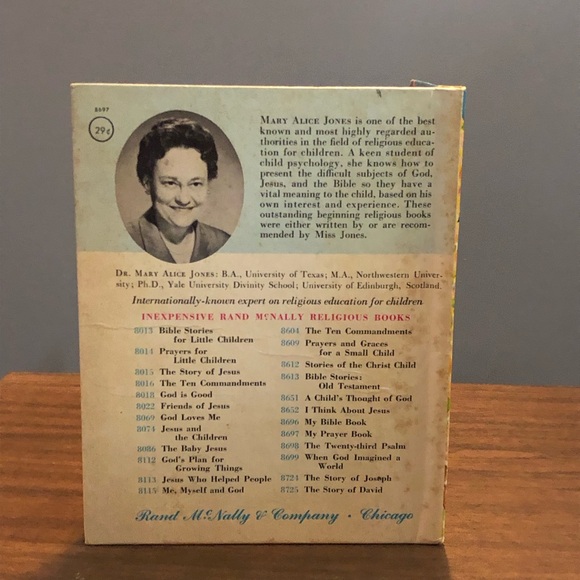 8697
29¢
MARY ALICE JONES is one of the best
known and most highly regarded au-
thorities in the field of religious educa-
tion for children. A keen student of
child psychology, she knows how to
present the difficult subjects of God,
Jesus, and the Bible so they have a
vital meaning to the child, based on his
own interest and experience. These
outstanding beginning religious books
were either written by or are recom-
mended by Miss Jones.
DR. MARY ALICE JONES: B.A., University of Texas; M.A., Northwestern Univer-
sity; Ph.D., Yale University Divinity School; University of Edinburgh, Scotland.
Internationally-known expert on religious education for children
INEXPENSIVE RAND McNALLY RELIGIOUS BOOKS
8013 Bible Stories
for Little Children
8014 Prayers for
Little Children
8015 The Story of Jesus
8016 The Ten Commandments
8018 God is Good
8022 Friends of Jesus
8069 God Loves Me
8074 Jesus and
the Children
8086 The Baby Jesus
8112 God's Plan for
Growing Things
8113 Jesus Who Helped People
8115 Me, Myself and God
8604 The Ten Commandments
8609 Prayers and Graces
for a Small Child
8612 Stories of the Christ Child
8613 Bible Stories:
Old Testament
8651 A Child's Thought of God
8652 I Think About Jesus
8696 My Bible Book
8697 My Prayer Book
8698 The Twenty-third Psalm
8699 When God Imagined a
World
8724 The Story of Joseph
8725 The Story of David
Rand McNally & Company · Chicago